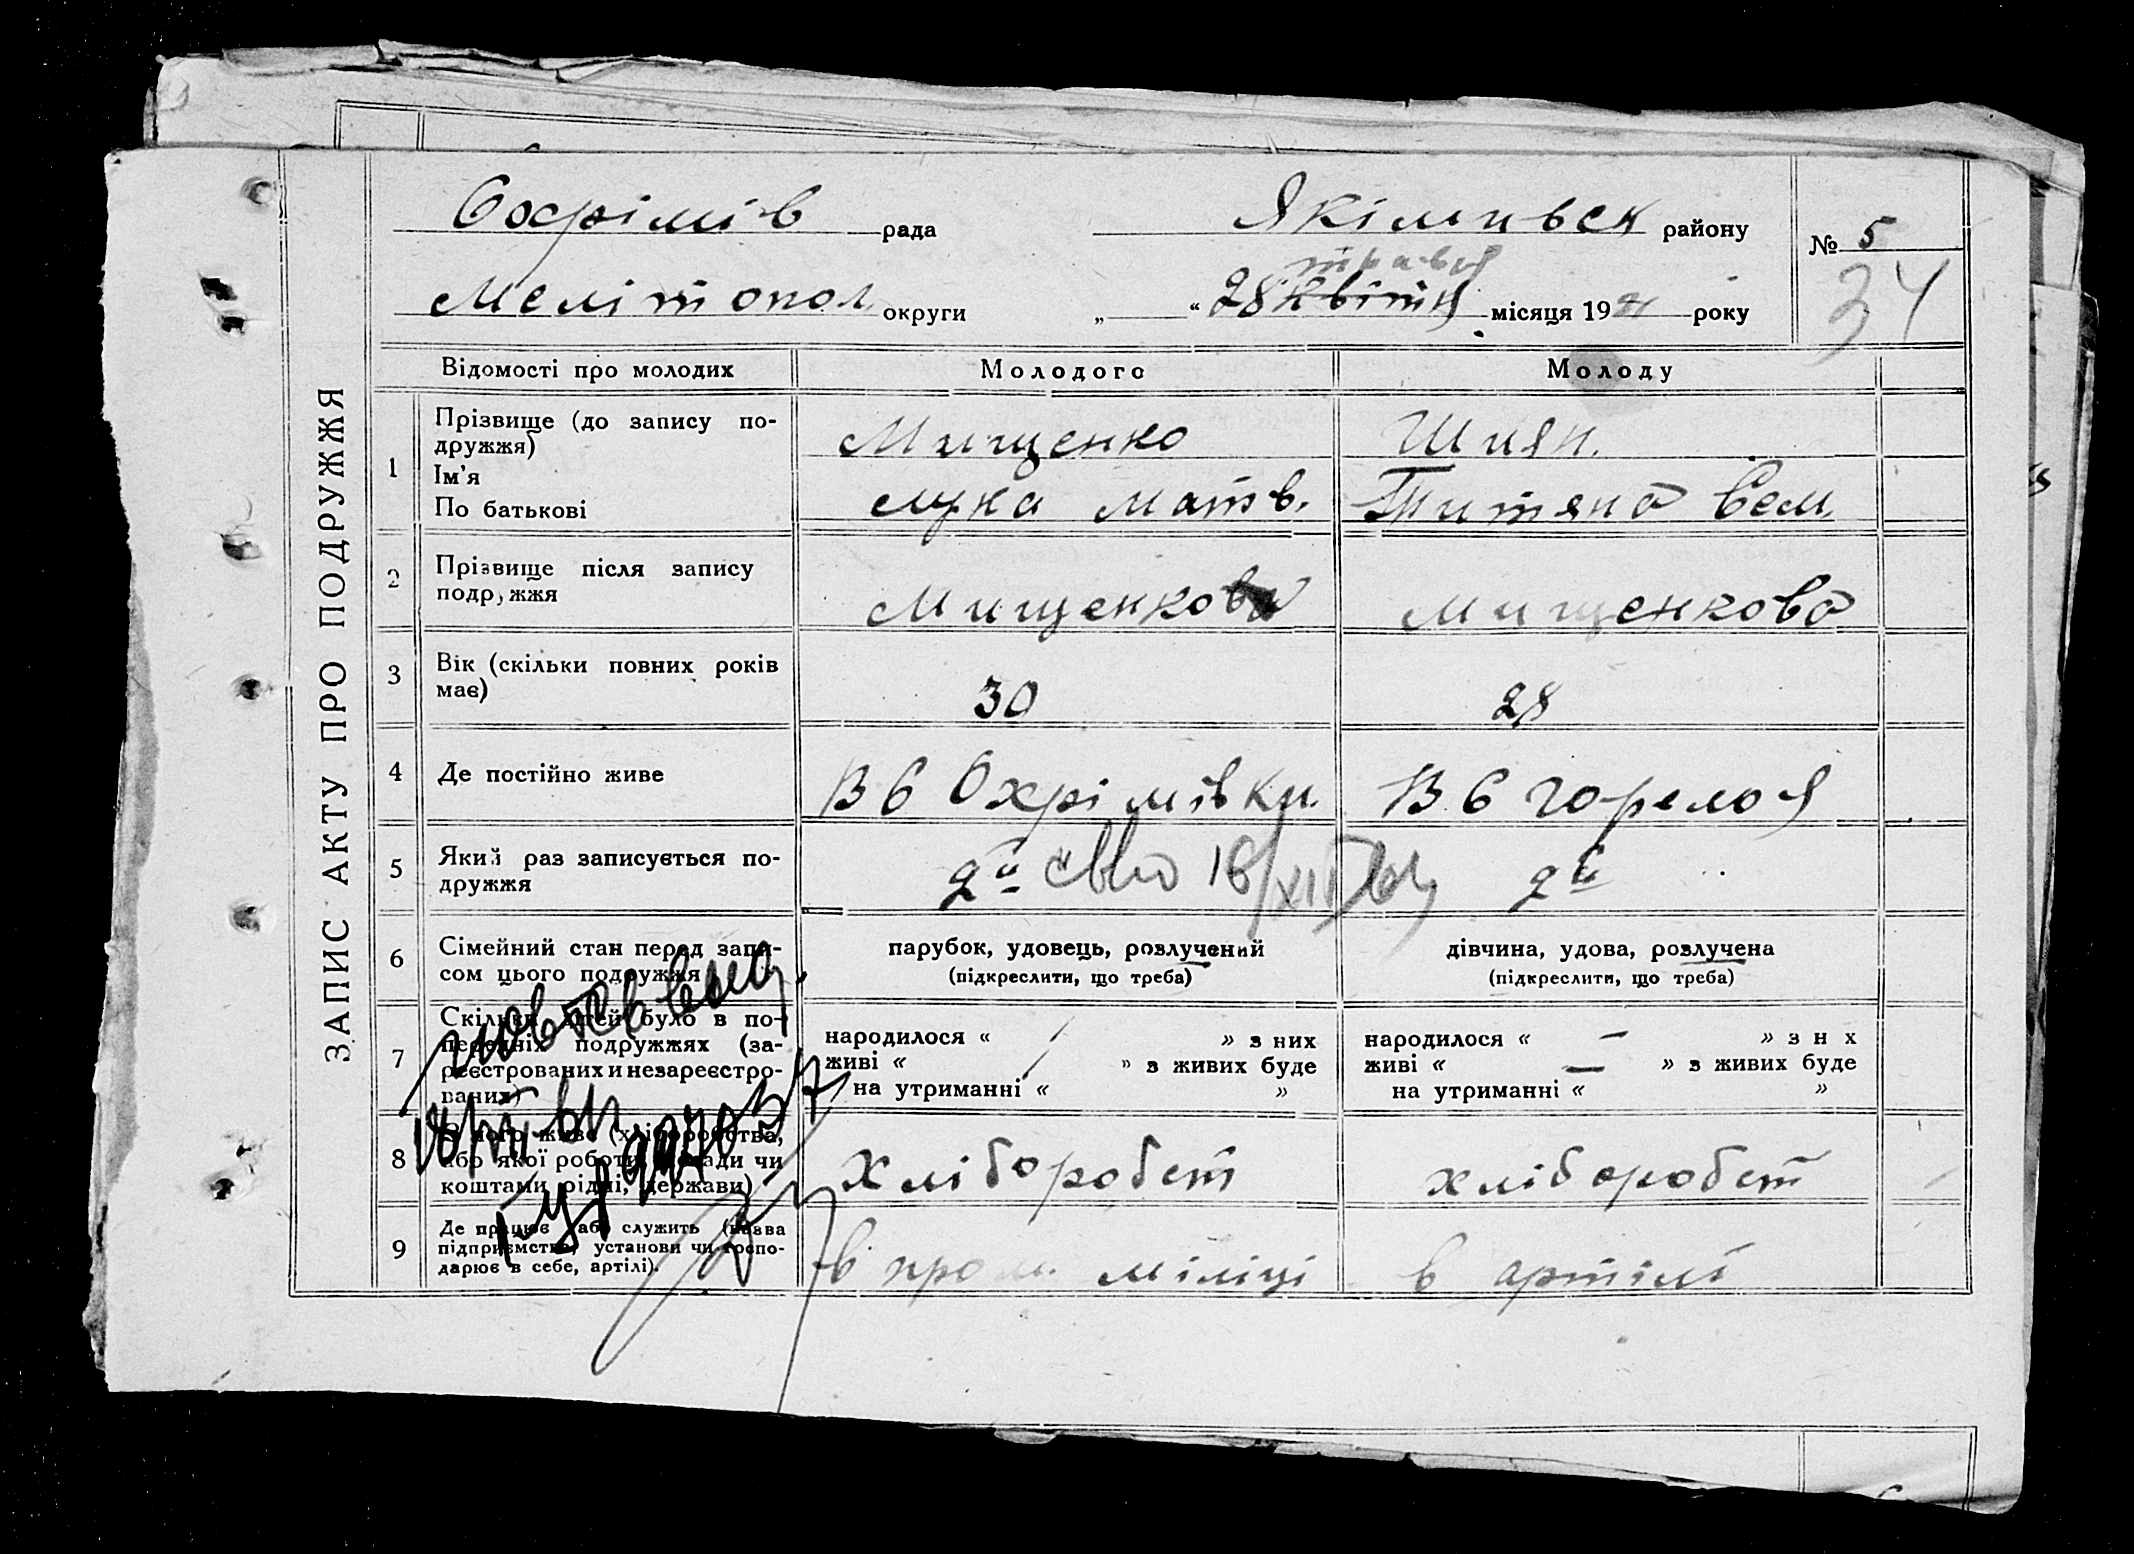 ЗАПИС АКТУ ПРО ПОДРУЖЖЯ
Охрімів рада Якімивск району № 5
травня 34
Мелітопол округи „ “ 28 квітня місяця 19 року
Відомості про молодих Молодого Молоду
1 Прізвище (до запису по-
дружжя) Мищенко Шиян.
Ім'я
По батькові Лука Матв. Титяна Сем.
2 Прізвище після запису
подружжя Мищенкова Мищенкова
3 Вік (скільки повних років
має) 30 28
4 Де постійно живе В С Охрімівки. В С Горелоя
5 Який раз записується по-
дружжя 2й 2й
6 Сімейний стан перед запи-
сом цього подружжя
парубок, удовець, розлучений дівчина, удова, розлучена
(підкреслити, що треба) (підкреслити, що треба)
7 Скільки дітей було в по-
передніх подружжях (за-
реєстрованих и незареєстро-
ваних)
народилося « / » з них народилося « — » з н х
живі « / » з живих буде живі « — » з живих буде
на утриманні « » на утриманні « »
8 З чого живе (хліборобства,
або якої роботи, посади чи
коштами рідні, держави) хліборобст хліборобст
9 Де працює або служить (назва
підприємства, установи чи госпо-
дарює в себе, артілі). в пром. міліці в артілі